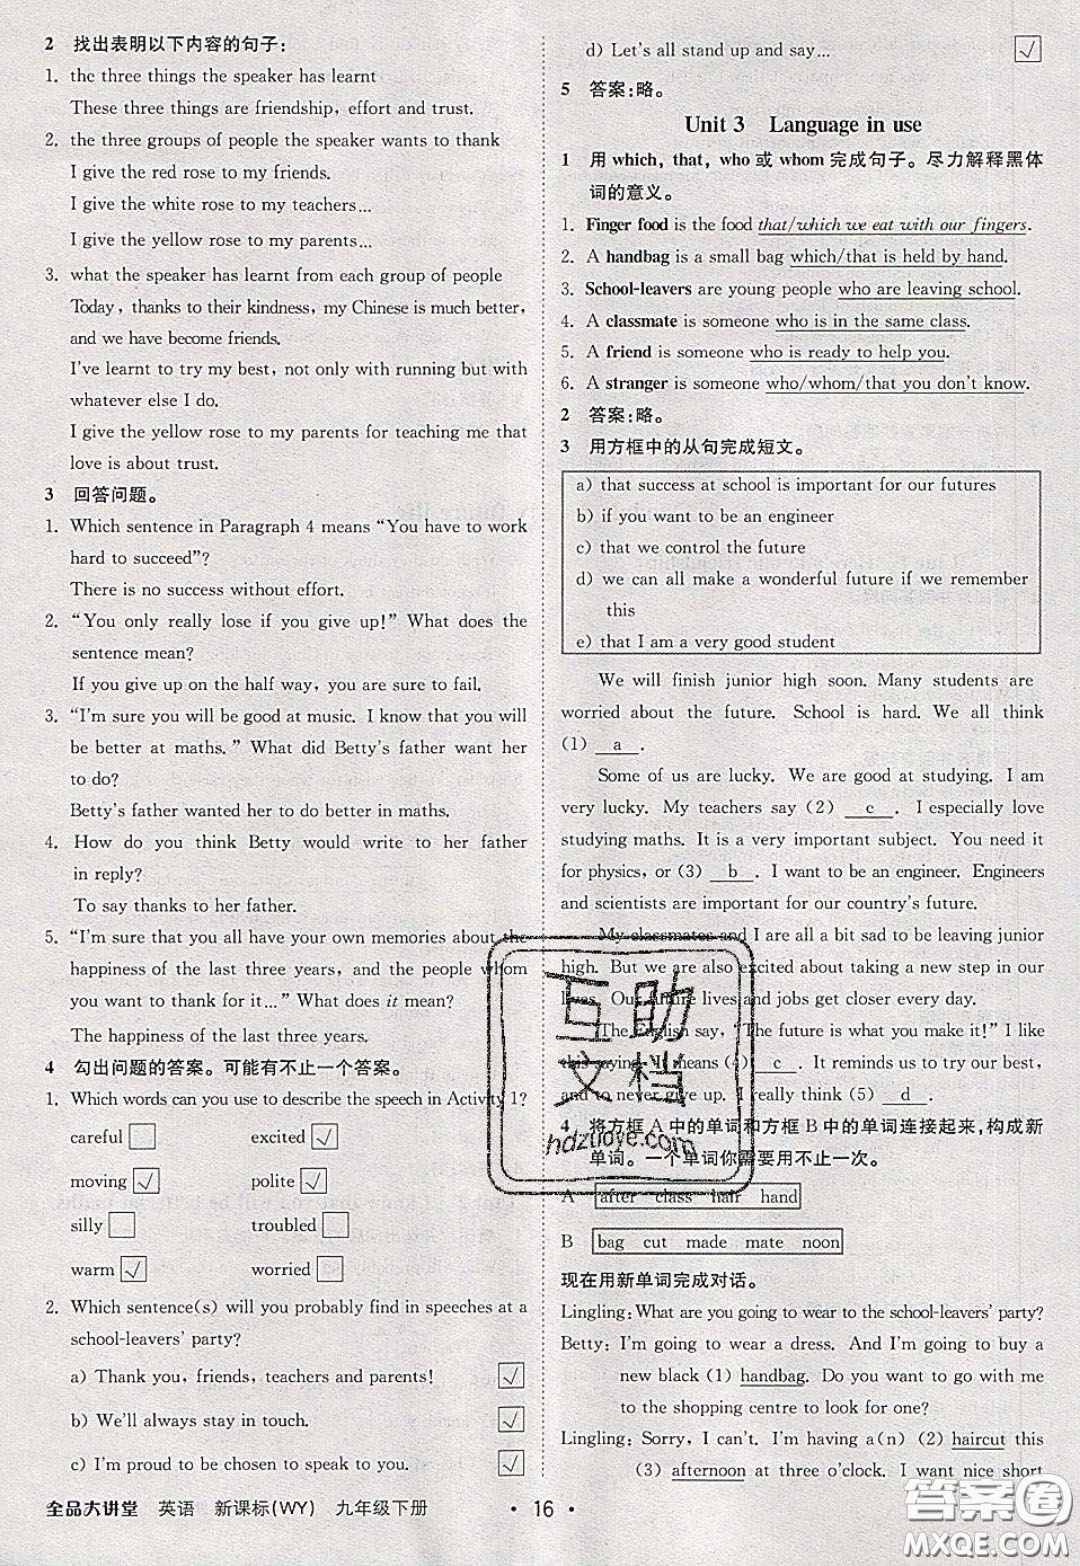 2 找出表明以下内容的句子:
1. the three things the speaker has learnt
These three things are friendship, effort and trust.
2. the three groups of people the speaker wants to thank
I give the red rose to my friends.
I give the white rose to my teachers...
I give the yellow rose to my parents...
3. what the speaker has learnt from each group of people
Today, thanks to their kindness, my Chinese is much better,
and we have become friends.
I've learnt to try my best, not only with running but with
whatever else I do.
I give the yellow rose to my parents for teaching me that
love is about trust.
3 回答问题。
1. Which sentence in Paragraph 4 means “You have to work
hard to succeed”?
There is no success without effort.
2. “You only really lose if you give up!” What does the
sentence mean?
If you give up on the half way, you are sure to fail.
3. “I'm sure you will be good at music. I know that you will
be better at maths.” What did Betty's father want her
to do?
Betty's father wanted her to do better in maths.
4. How do you think Betty would write to her father
in reply?
To say thanks to her father.
5. “I'm sure that you all have your own memories about the
happiness of the last three years, and the people whom
you want to thank for it...” What does it mean?
The happiness of the last three years.
4 勾出问题的答案。可能有不止一个答案。
1. Which words can you use to describe the speech in Activity 1?
careful □ excited ☑
moving ☑ polite ☑
silly □ troubled □
warm ☑ worried □
2. Which sentence(s) will you probably find in speeches at a
school-leavers' party?
a) Thank you, friends, teachers and parents! ☑
b) We'll always stay in touch. ☑
c) I'm proud to be chosen to speak to you. ☑
d) Let's all stand up and say... ☑
5 答案:略。
Unit 3 Language in use
1 用 which, that, who 或 whom 完成句子。尽力解释黑体
词的意义。
1. Finger food is the food that/which we eat with our fingers.
2. A handbag is a small bag which/that is held by hand.
3. School-leavers are young people who are leaving school.
4. A classmate is someone who is in the same class.
5. A friend is someone who is ready to help you.
6. A stranger is someone who/whom/that you don't know.
2 答案:略。
3 用方框中的从句完成短文。
a) that success at school is important for our futures
b) if you want to be an engineer
c) that we control the future
d) we can all make a wonderful future if we remember
this
e) that I am a very good student
We will finish junior high soon. Many students are
worried about the future. School is hard. We all think
(1) a .
Some of us are lucky. We are good at studying. I am
very lucky. My teachers say (2) c . I especially love
studying maths. It is a very important subject. You need it
for physics, or (3) b . I want to be an engineer. Engineers
and scientists are important for our country's future.
My classmates and I are all a bit sad to be leaving junior
high. But we are also excited about taking a new step in our
lives. Our future lives and jobs get closer every day.
The English say, “The future is what you make it!” I like
this saying. It means (4) c . It reminds us to try our best,
and to never give up. I really think (5) d .
4 将方框 A 中的单词和方框 B 中的单词连接起来,构成新
单词。一个单词你需要用不止一次。
A after class hair hand
B bag cut made mate noon
现在用新单词完成对话。
Lingling: What are you going to wear to the school-leavers' party?
Betty: I'm going to wear a dress. And I'm going to buy a
new black (1) handbag. Do you want to go with me
to the shopping centre to look for one?
Lingling: Sorry, I can't. I'm having a(n) (2) haircut this
(3) afternoon at three o'clock. I want nice short
全品大讲堂 英语 新课标(WY) 九年级下册 • 16 •
互助
文档
hdzuoye.com
答案圈
MXQE.COM